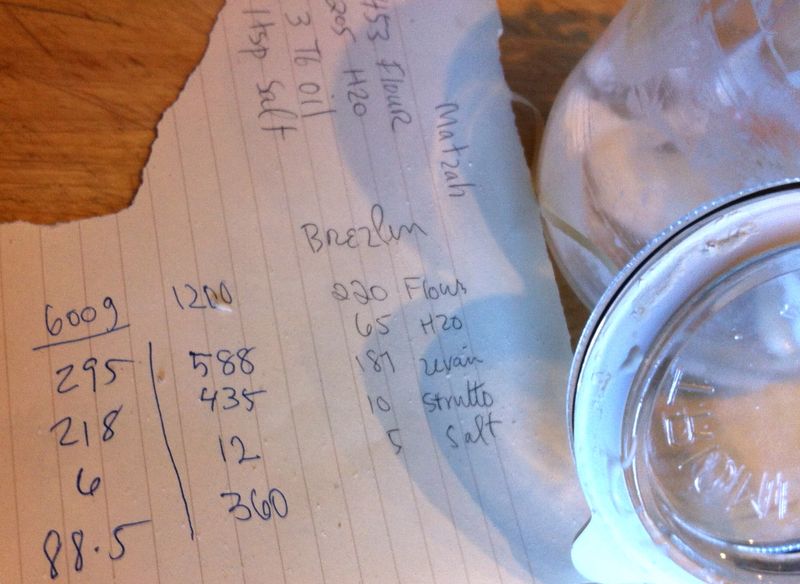 Matzah
453 Flour
205 H2O
3 Tb oil
1 tsp salt
Brezlen
220 Flour
65 H2O
187 levain
10 Strutto
5 Salt
600g 1200
295 588
218 435
6 12
88.5 360